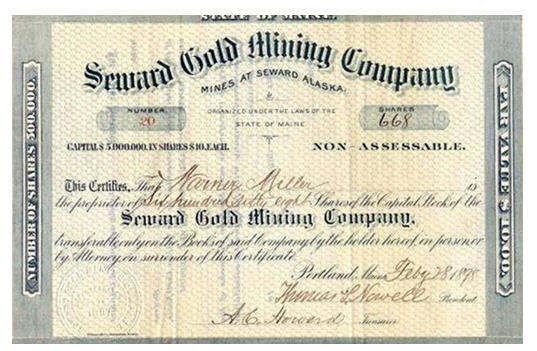 STATE OF MAINE.
Seward Gold Mining Company
MINES AT SEWARD ALASKA.
NUMBER.
20
ORGANIZED UNDER THE LAWS OF THE
STATE OF MAINE
SHARES
668
CAPITAL $ 5,000,000, IN SHARES $ 10, EACH.
NON-ASSESSABLE.
This Certifies, That Warner Miller is
the proprietor of Six hundred sixty eight Shares of the Capital Stock of the
Seward Gold Mining Company,
transferable only on the Books of said Company by the holder hereof in person or
by Attorney, on surrender of this Certificate.
Portland, Maine, Feby 28 1898
Thomas S. Nowell President
A.C. Howard Treasurer
NUMBER OF SHARES 500,000.
PAR VALUE $ 10.00.